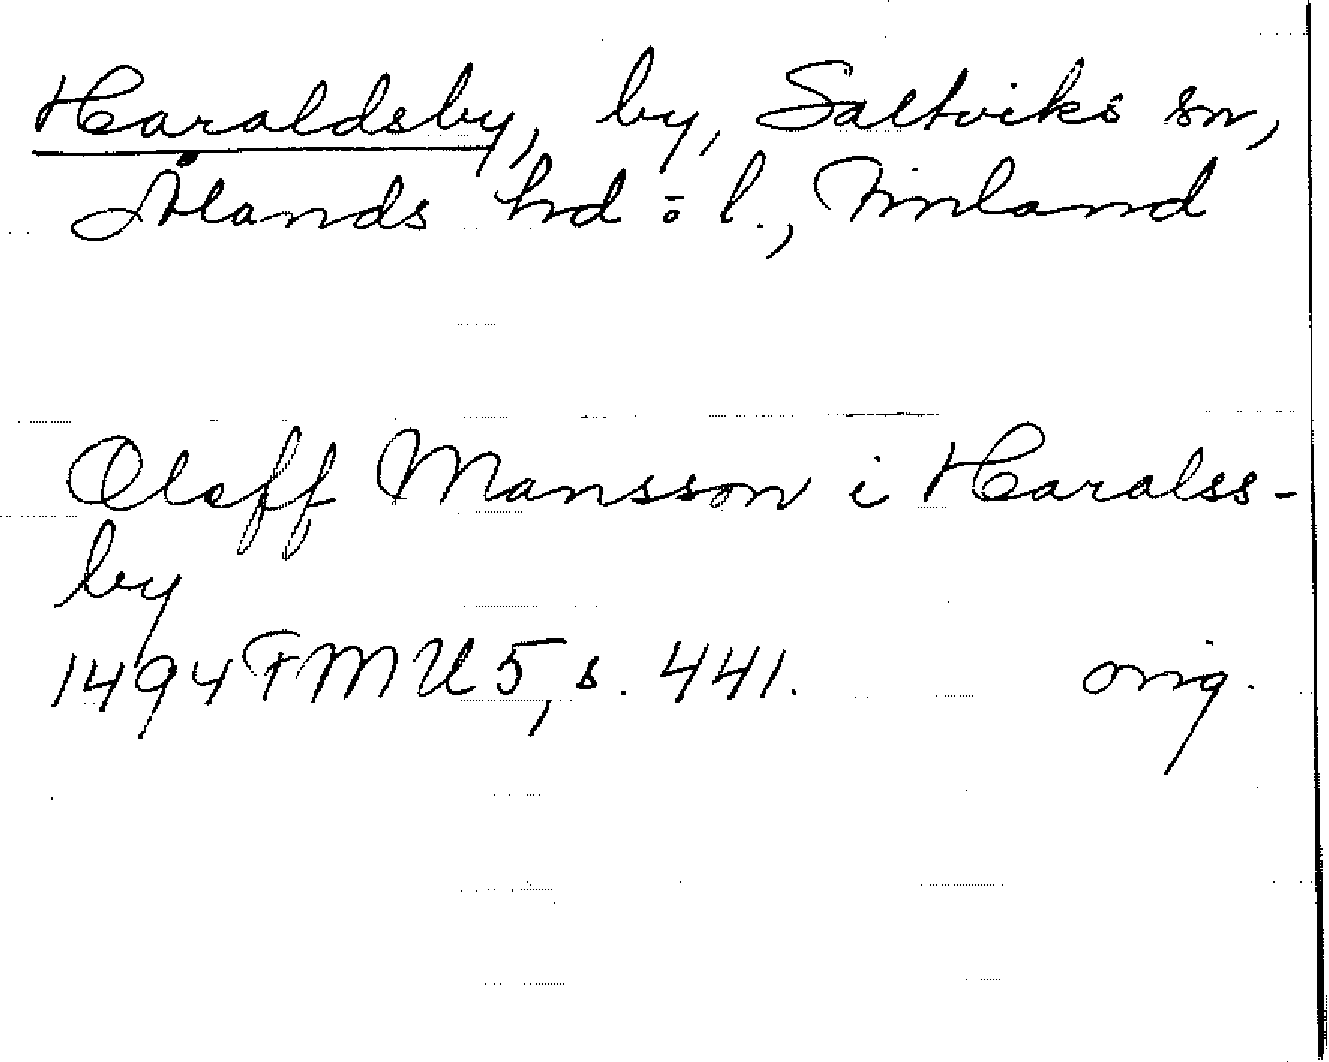 Haraldsby, by, Saltviks sn,
Ålands hd o l., Finland
Oleff Mansson i Haralss-
by
1494 FMU 5, s. 441. orig.